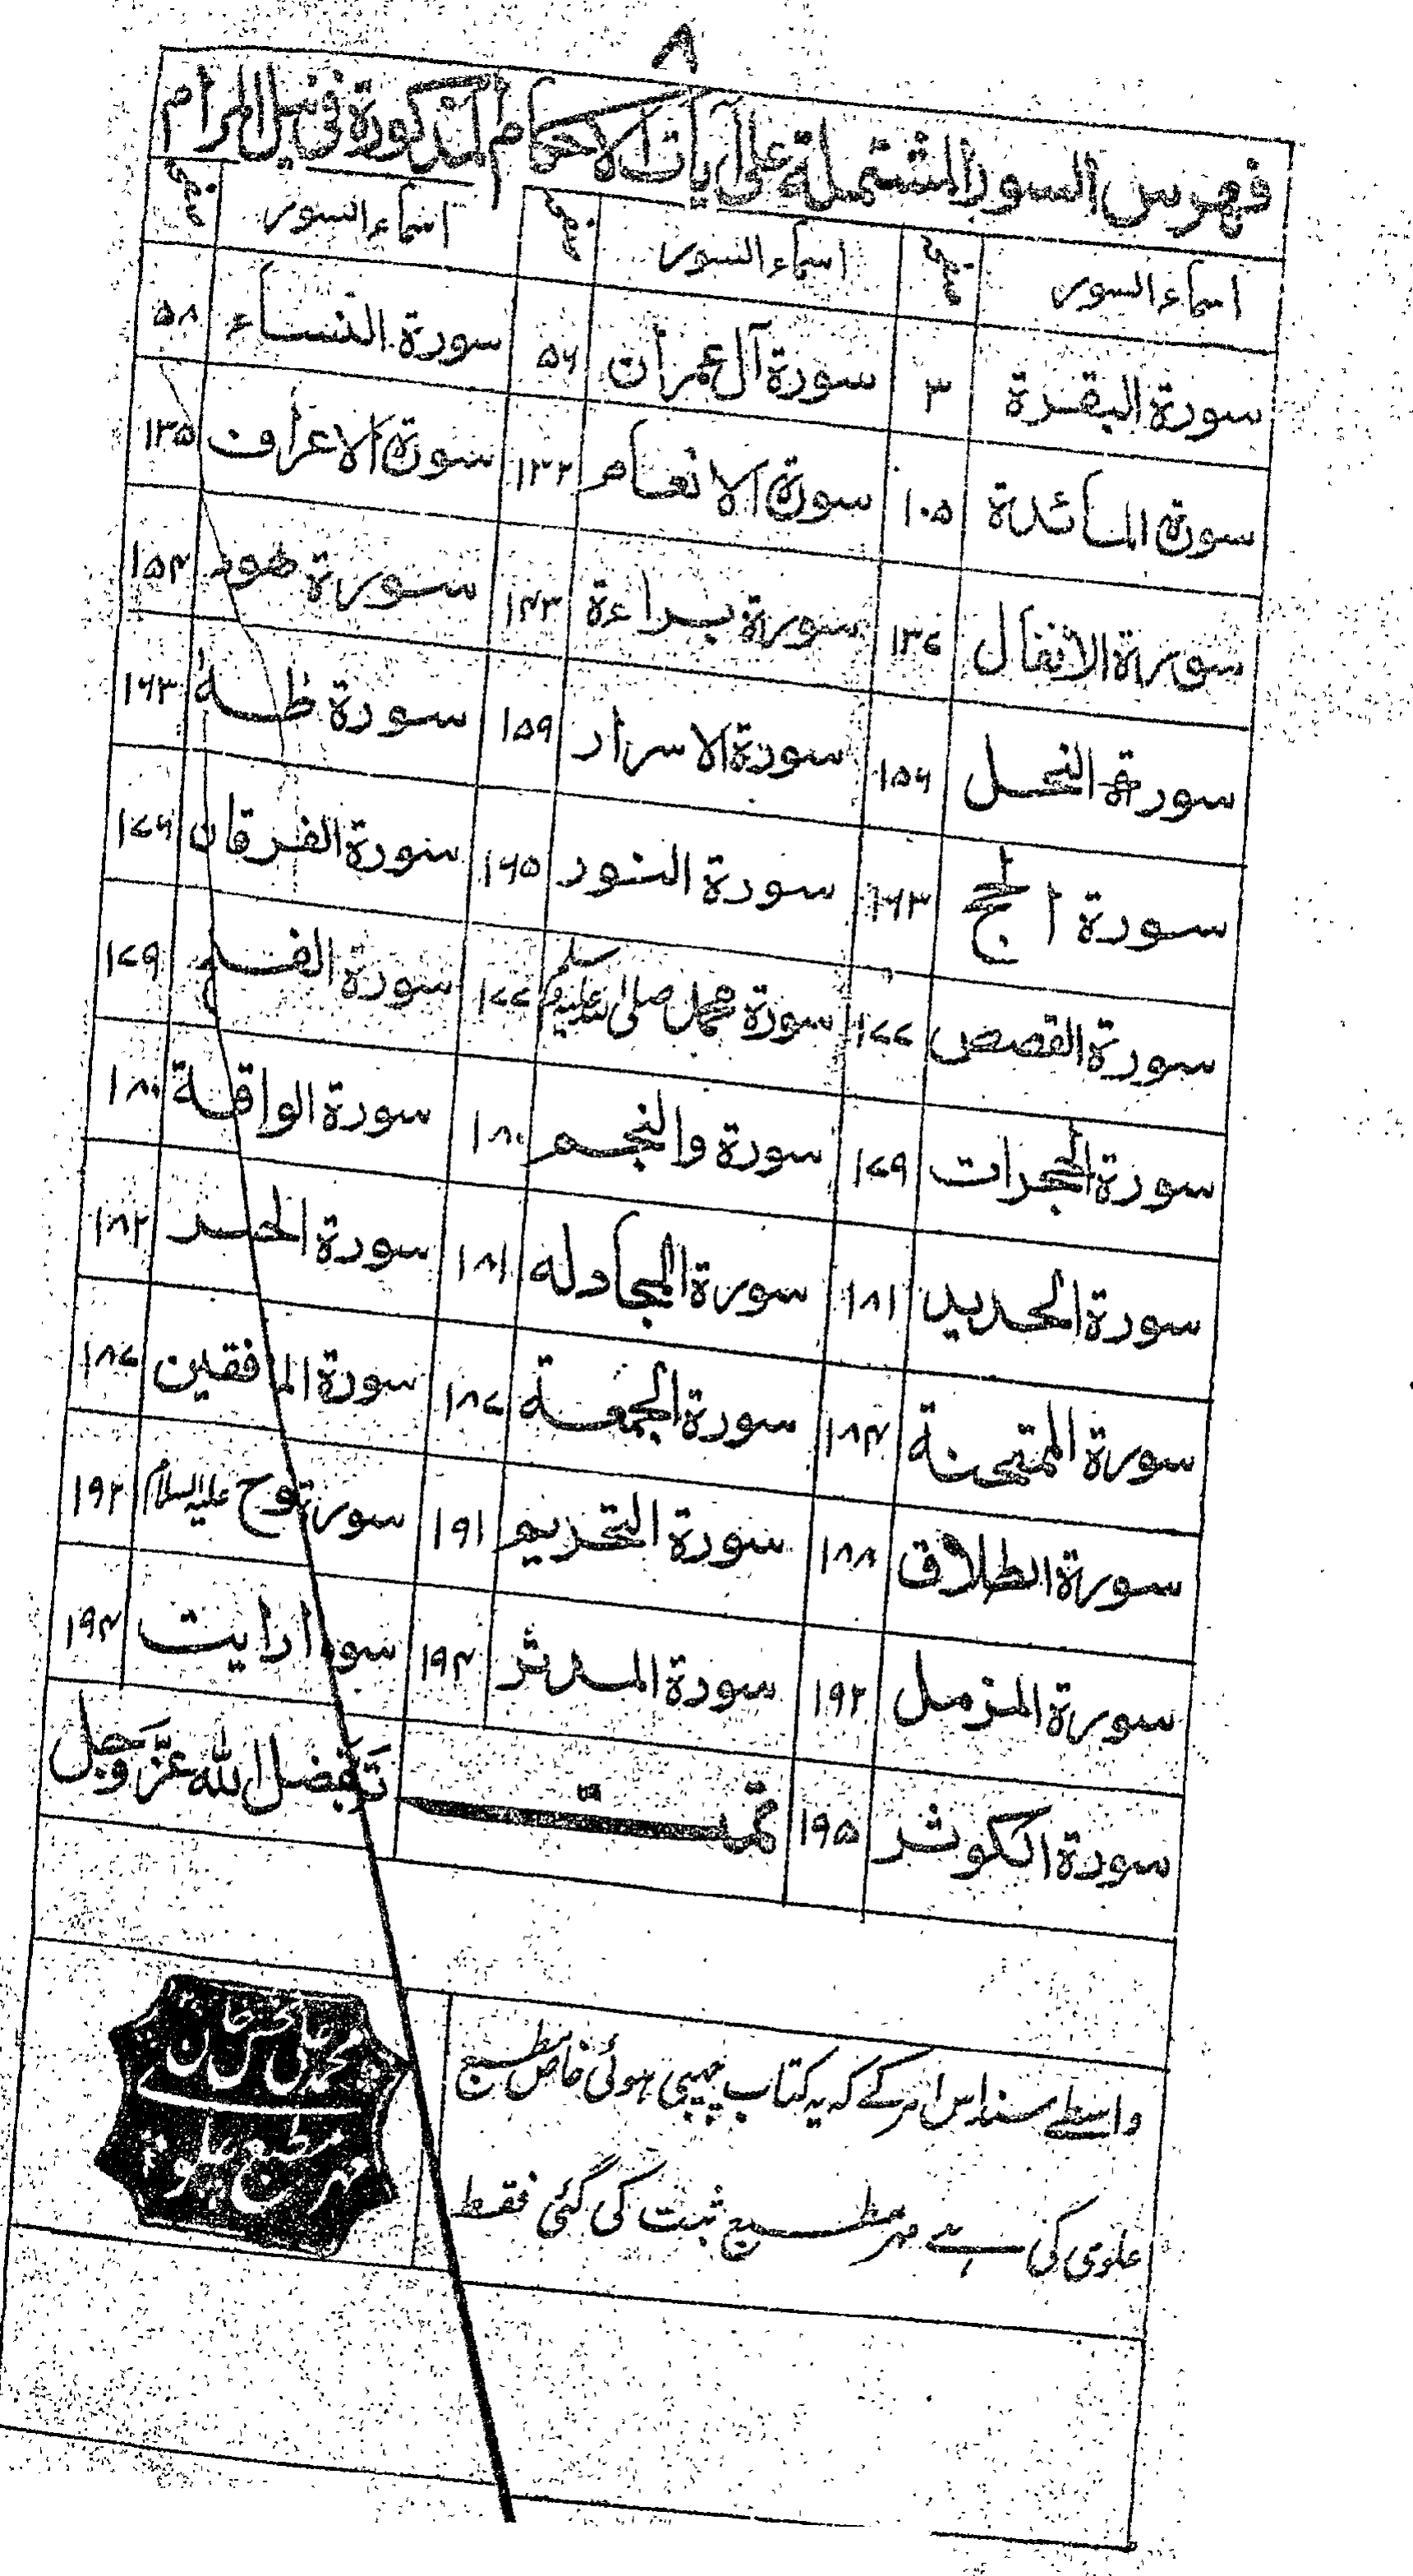 ٨
فهرس السور المشتملة على آيات الاحكام المذكورة فى نيل المرام
اسماء السور صفحه اسماء السور صفحه اسماء السور صفحه
سورة البقرة ۳ سورة آل عمران ۵۶ سورة النساء ۵۸
سورة المائدة ۱۰۵ سورة الانعام ۱۳۳ سورة الاعراف ۱۳۵
سورة الانفال ۱۳۷ سورة براءة ۱۴۳ سورة هود ۱۵۴
سورة النحل ۱۵۶ سورة الاسرار ۱۵۹ سورة طه ۱۶۳
سورة الحج ۱۶۳ سورة النور ۱۶۵ سورة الفرقان ۱۷۶
سورة القصص ۱۷۷ سورة محمد صلى الله عليه وسلم ۱۷۷ سورة الفتح ۱۷۹
سورة الحجرات ۱۷۹ سورة والنجم ۱۸۰ سورة الواقعة ۱۸۰
سورة الحديد ۱۸۱ سورة المجادله ۱۸۱ سورة الحشر ۱۸۲
سورة الممتحنة ۱۸۴ سورة الجمعة ۱۸۷ سورة المنافقين ۱۸۷
سورة الطلاق ۱۸۸ سورة التحريم ۱۹۱ سورة نوح عليه السلام ۱۹۲
سورة المزمل ۱۹۲ سورة المدثر ۱۹۴ سورة ارايت ۱۹۴
سورة الكوثر ۱۹۵ تمت بفضل الله عَزَّ وَجل
واسطے سند اس امر کے کہ یہ کتاب چھپی ہوئی خاص مطبع
علوی کی ہے مہر مطبع ثبت کی گئی فقط
محمد علی بخش خان
مهر مطبع علوی